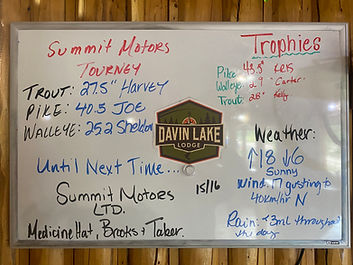 Summit Motors
Tourney
Trout: 27.5" Harvey
Pike: 40.5 Joe
Walleye: 25.2 Sheldon
Until Next Time...
Summit Motors
LTD.
Medicine Hat, Brooks & Taber.
DAVIN LAKE
LODGE
15/16
Trophies
Pike: 43.5" Kris
Walleye: 29" Carter
Trout: 28" Kelly
Weather:
↑18 ↓6
Sunny
Wind: 17 gusting to
40km/hr N
Rain: <3ml throughout
the day